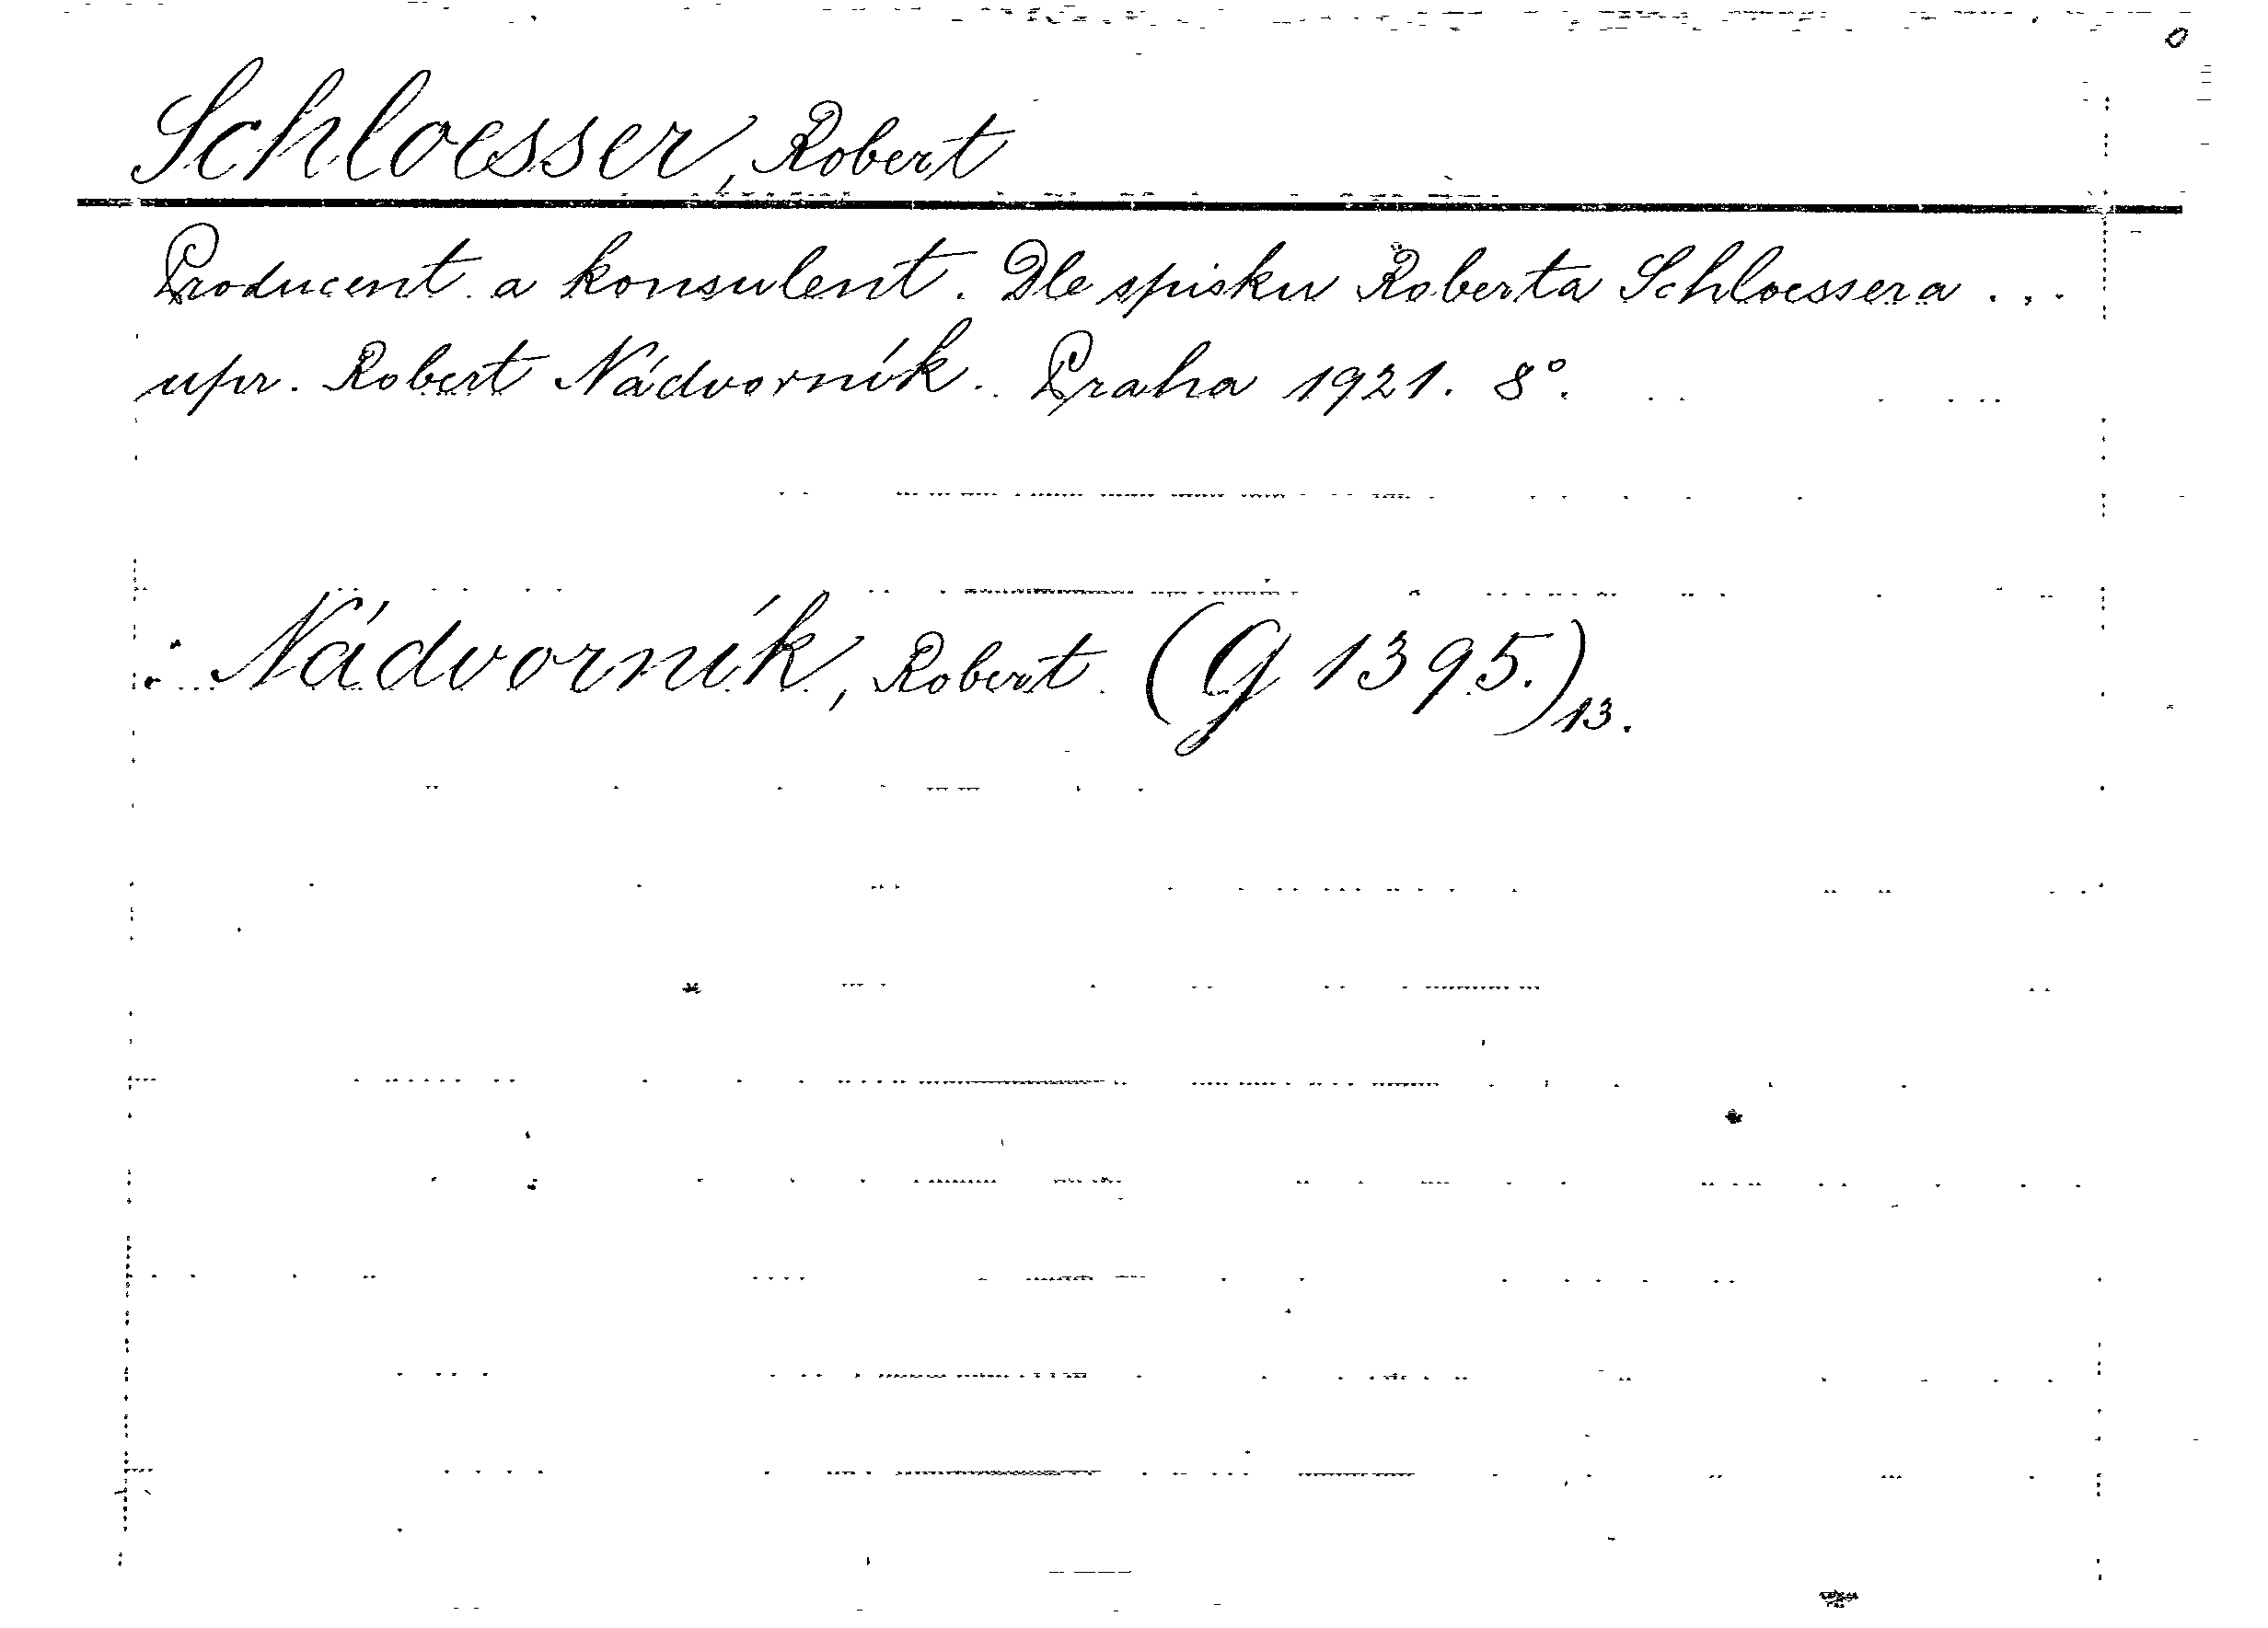 Schloesser, Robert
Producent a konsulent. Dle spisku Roberta Schloessera...
upr. Robert Nádvorník. Praha 1921. 8°.
: Nádvorník, Robert. (G 1395.)13.